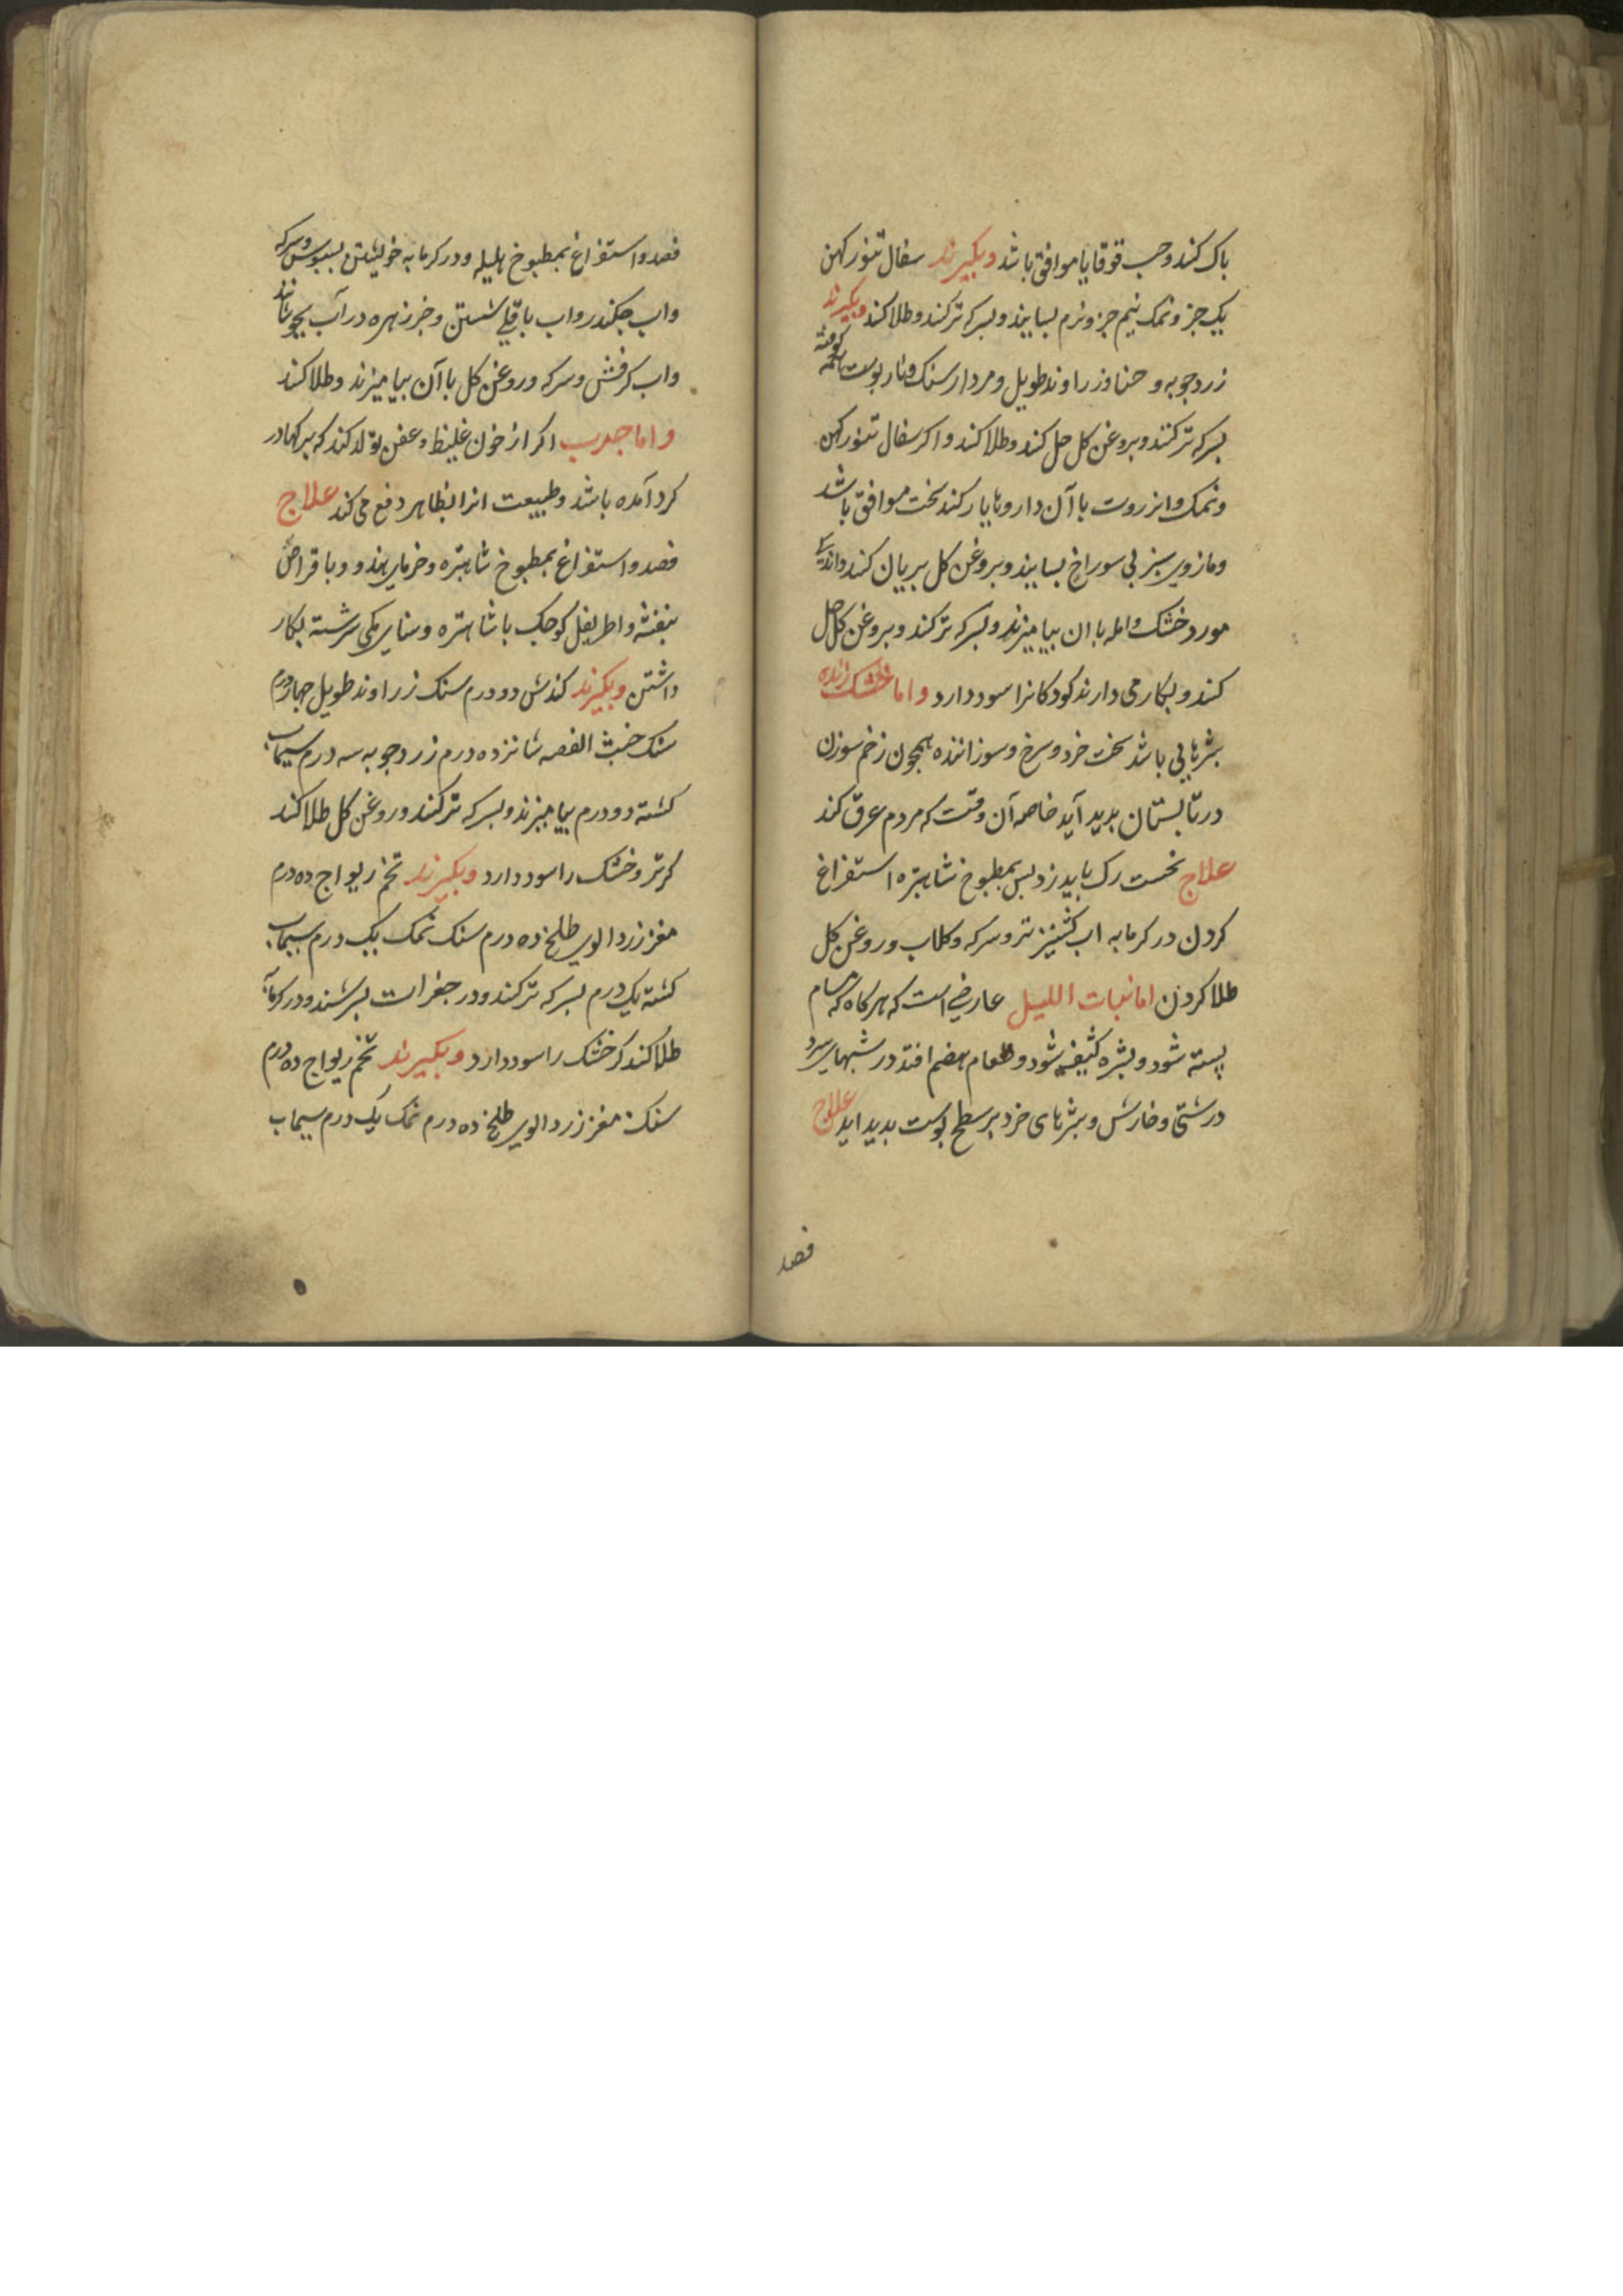 باک کند و حب قوقایا موافق باشد و بکیرند سفال تنور کهن
یک جز و نمک نیم جز و نرم بسایند و بسرکه تر کند و طلا کند و بکیرند
زردجوبه و حنا و زراوند طویل و مردار سنک و نار بوست همه کوفته
بسرکه تر کنند و بروغن کل حل کند و طلا کند و اکر سفال تنور کهن
و نمک و انزروت با آن داروها یار کند سخت موافق باشد
و مازوی سبز بی سوراخ بسایند و بروغن کل بریان کند و اندکی
مورد خشک و امله با ان بیامیزند و بسرکه تر کند و بروغن کل حل
کند و بکار می دارند کودکانرا سود دارد و اما خشک ریشه
بثرهایی باشد سخت خرد و سرخ و سوزاننده همجون زخم سوزن
در تابستان بدید آید خاصه آن وقت که مردم عرق کند
علاج نخست رک باید زد بس بمطبوخ شاهتره استفراغ
کردن در کرمابه اب کشنیز تر و سرکه و کلاب و روغن کل
طلا کردن اما نبات اللیل عارضی است که هرکاه که مسام
بسته شود و بشره کثیف شود و طعام هضم افتد در شبهای سرد
درشتی و خارش و بثرهای خرد بر سطح بوست بدید اید علاج
فصد
فصد و استفراغ بمطبوخ هلیله و در کرمابه خویشتن بسبوس و سرکه
و اب جکندر و اب باقلی شستن و خرزهره در آب بجوشانند
و اب کرفس و سرکه و روغن کل با آن بیامیزند و طلا کند
و اما جرب اکر از خون غلیظ و عفن تولد کند که برکها در
کرد آمده باشد و طبیعت انرا بظاهر دفع می کند علاج
فصد و استفراغ بمطبوخ شاهتره و خرمای هندو و باقراص
بنفشه و اطریفل کوجک با شاهتره و سنای مکی سرشته بکار
داشتن و بکیرند کندش دو درم سنک زراوند طویل جهار درم
سنک خبث الفضه شانزده درم زردجوبه سه درم سیماب
کشته دو درم بیامیزند و بسرکه تر کند و روغن کل طلا کند
کر تر و خشک را سود دارد و بکیرند تخم ریواج ده درم
مغز زردالوی طلخ ده درم سنک نمک یک درم سیماب
کشته یک درم بسرکه تر کند و در جغرات بسرشند و در کرمابه
طلا کند کر خشک را سود دارد و بکیرند تخم ریواج ده درم
سنک مغز زردالوی طلخ ده درم نمک یک درم سیماب